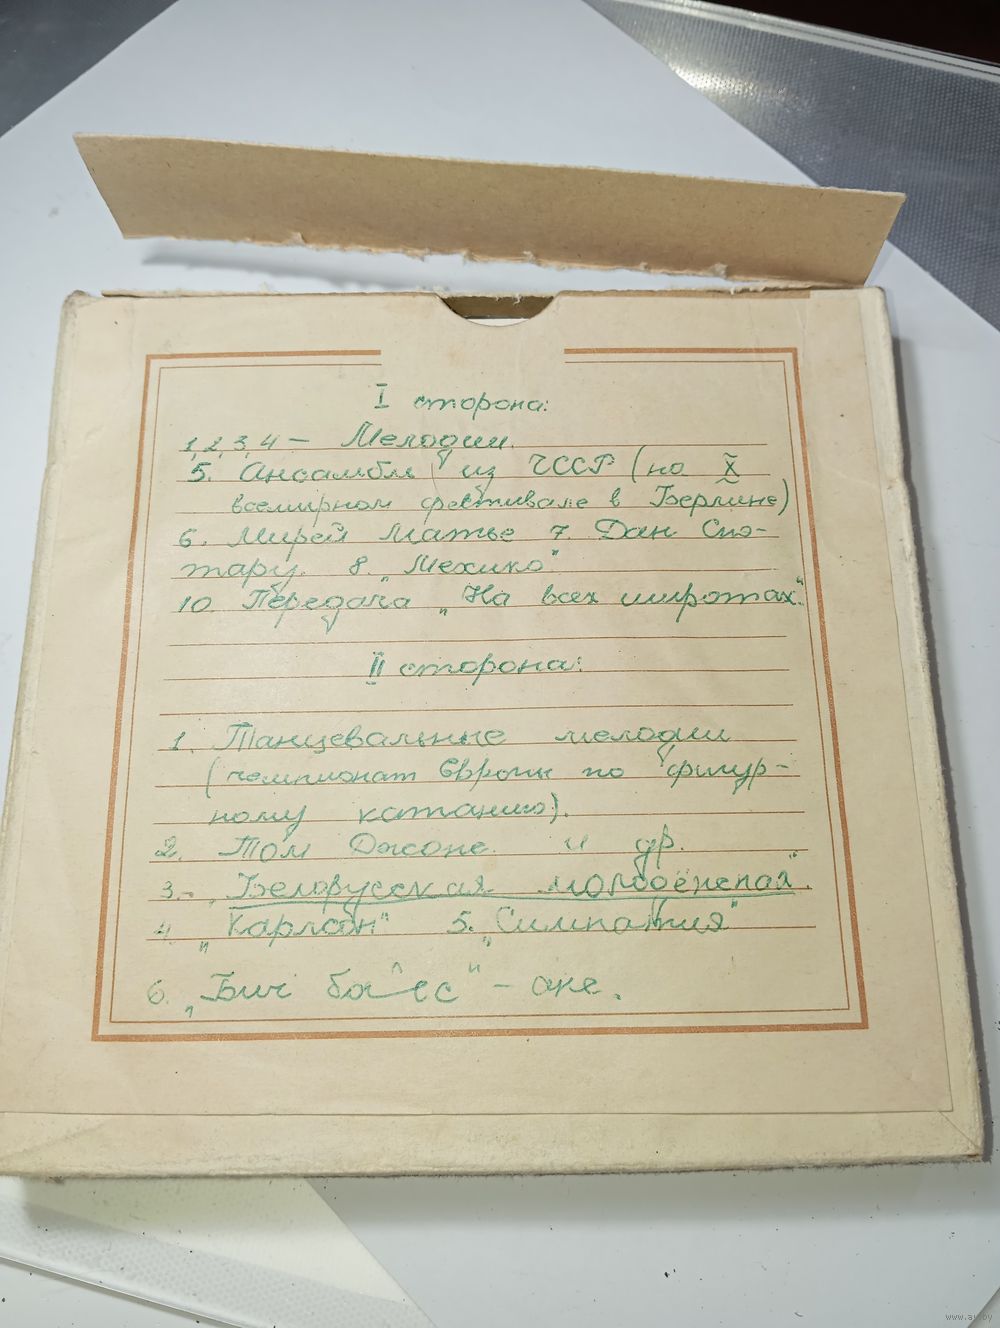 I сторона:
1,2,3,4 – Мелодии.
5. Ансамбль из ЧССР (на X
всемирном фестивале в Берлине)
6. Мирей Матье 7 Дан Спэ-
тару. 8. "Мехико"
10. Передача „На всех широтах".
II сторона:
1. Танцевальные мелодии
(чемпионат Европы по фигур-
ному катанию).
2. Том Джонс и др.
3. – „Белорусская
4. „Карлсон" 5. „Симпатия"
6. „Бич –
www.ay.by